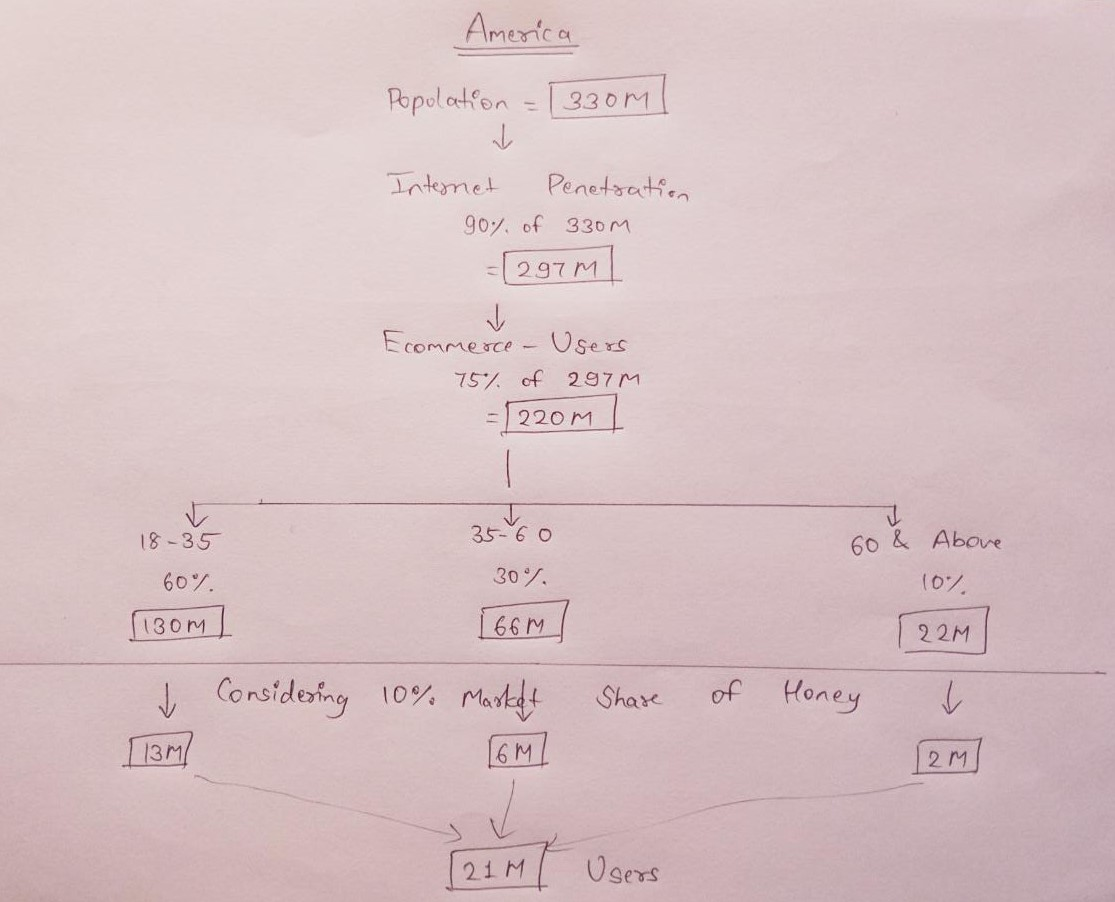 America
Population = 330M
Internet Penetration
90% of 330M
= 297M
Ecommerce - Users
75% of 297M
= 220M
18-35 35-60 60 & Above
60% 30% 10%
130M 66M 22M
Considering 10% Market Share of Honey
13M 6M 2M
21M Users